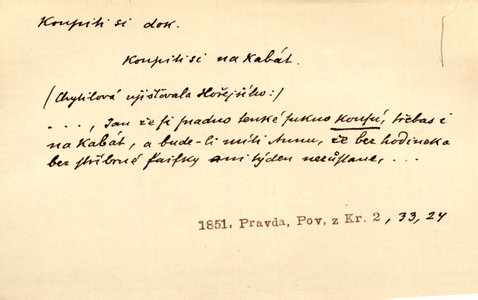 Koupiti si dok.
Koupiti si na kabát.
(Chytilová ujišťovala Hořejšího:)
. . . , Jan že si snadno tenké sukno koupí, třebas i
na kabát, a bude-li míti Annu, že bez hodinek a
bez stříbrné fajfky ani týden nezůstane, . . .
1851. Pravda, Pov. z Kr. 2, 33, 24